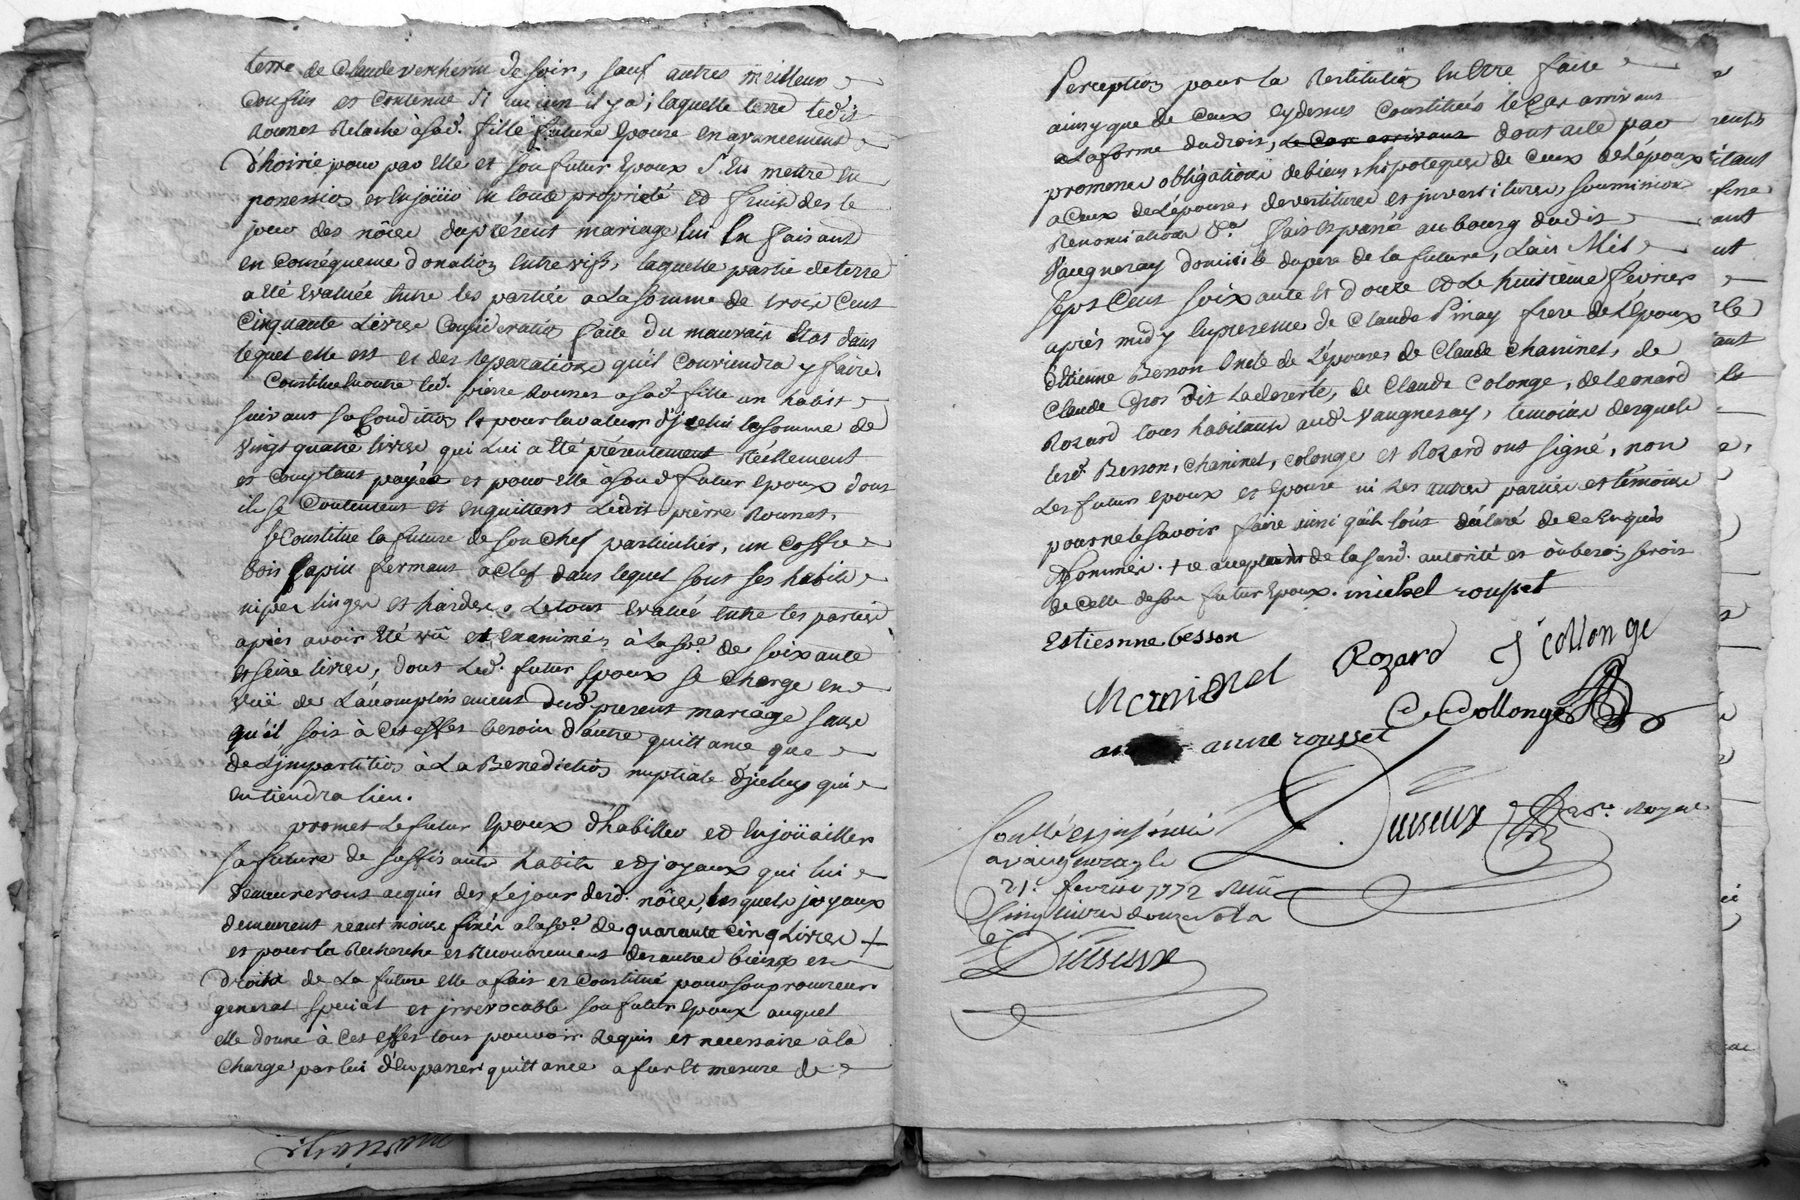 terre de Claude verherin de soir, sauf autres meilleurs
confins et contenue si aucun il y a; laquelle terre ledit
Rounet Relache à sad. fille future Epouse en avancement
d'hoirie pour par elle et son futur Epoux s'en mettre en
possession et en jouir en toute propriété et fruits des le
jour des nôces du présent mariage lui en faisant
en conséquence donation entre vifs, laquelle partie de terre
a été Evaluée entre les parties a la somme de trois cent
Cinquante Livres Consideration faite du mauvais Etat dans
lequel elle est et des reparations qu'il conviendra y faire.
Constitue en outre led. pierre Rounet a sad. fille un habit
suivant sa Condition et pour la valeur d'jcelui la somme de
vingt quatre livres qui lui a Eté présentement réellement
et comptant payée et pour elle à sond. futur epoux dont
ils se Contentent et en quittent Ledit pierre Rounet.
Se Constitue la future de son Chef particulier, un coffre
bois sapin fermant a clef dans lequel sont ses habits
nipes linges et hardes, Le tout evalué entre les parties
après avoir Eté vû et examiné, à la so.e de soixante
et seize livres, dont Led. futur Epoux se charge en
vuë de L'accomplissement dud. present mariage sans
qu'il soit à cet effet besoin d'autre quittance que
de L'jmpartition à La Benediction nuptiale d'jceluy qui
en tiendra lieu.
promet Le futur Epoux d'habiller et Enjoüailler
sa future de suffisants habits et joyaux qui lui
demeureront acquis des Le jour desd. nôces, lesquels joyaux
demeurent neant moins fixés a la so.e de quarante cinq Livres +
et pour la Recherche et Recouvrement des autres biens et
Droits de La future elle a fait et Constitué pour son procureur
general special et jrrevocable son futur Epoux auquel
elle donne à cet effet tout pouvoir Requis et necessaire à la
Charge par lui d'en passer quittance a fur et mesure de
Perception pour la Restitution En Etre faite
ainsy que de Ceux cy dessus Constitués le Cas arrivant
a la forme du droit, le Cas arrivant dont acte par
promesses obligations de biens hipoteques de Ceux de L'époux
a Ceux de L'épouse, devestitures et jnvestitures, soumissions
Renonciations &a fait et passé au bourg dudit
Vaugneray domicile du pere de la future, L'an Mil
sept Cent soixante et douze et Le huitieme fevrier
après midy En presence de Claude Pinay frere de L'Epoux
d'Etienne Besson Oncle de L'épouse, de Claude Chaninel, de
Claude Gros dit Ladeserte, de Claude Colonge, de Leonard
Rozard tous habitants aud. Vaugneray, témoins desquels
lesd. Besson, Chaninel, colonge et Rozard ont signé, non
Les futurs epoux et epouse ni Les autres parties et témoins
pour ne le savoir faire ainsi qu'ils l'ont déclaré de ce Enquis
et sommés. + ce acceptant de la sus d. autorité et où besoin seroit
de celle de son futur Epoux. michel roupet
Estiesnne besson
chaninel Rozard J collonge
C Collonge
anne rousset
Duiseux no.re Royal
Contrôlé et jnsinué
a vaugneray le
21.e fevrier 1772 Reçu
Cinq livres douze sols
Duiseux